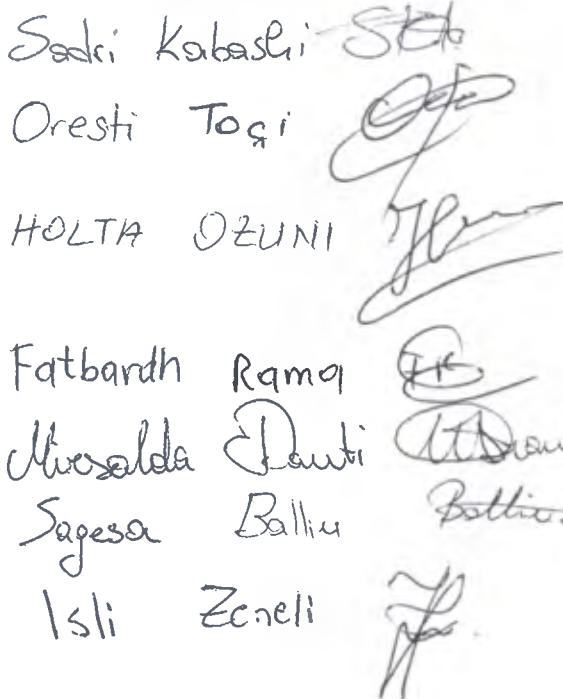 Sadri Kabashi
Oresti Toçi
HOLTA OZUNI
Fatbardh Rama
Mirsalda Dauti
Sagesa Balliu Balliu
Isli Zeneli